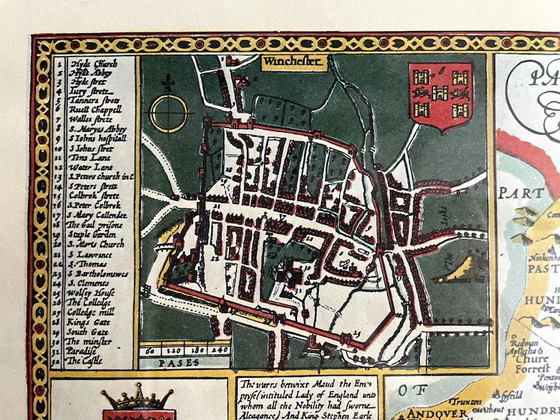 1 Hyde Church
2 Hyde Abbey
3 Hyde strete
4 Iury strete
5 Tanners strete
6 Ruell Chappell
7 Walles strete
8 S. Maryes Abbey
9 S Iohns hospitall
10 S Iohns stret
11 Tens Lane
12 Water Lane
13 S. Peters church in C
14 S. Peters strett
15 Colbrok strete
16 S. Peter Colbrok
17 S Mary Callender
18 The Gail prisone
19 Staple Garden
20 S. Moris Church
21 S Lawrance
22 S. Thomas
23 S Bartholomewes
24 S. Clements
25 Wolsey House
26 The Colledge
27 Colledg mill
28 Kings Gate
29 South Gate
30 The minster
31 Paradise
32 The Castle
Winchester
60 120 180 240
PASES
PA
PART
PAST
Chute
Forrest
The warrs betwixt Maud the Em-
presse intituled Lady of England unto
whom all the Nobility had sworne
Aleagance) And King Stephen Earle
OF
ANDOVER
HUN